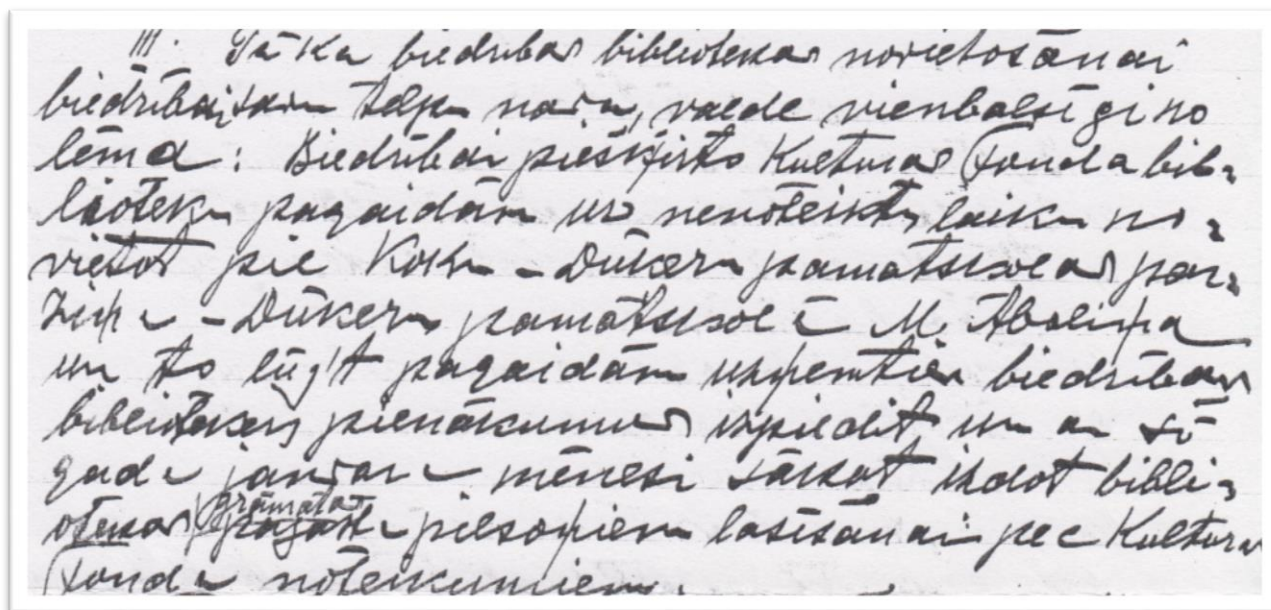 III. Tā kā biedrības bibliotekas novietošanai
biedrībai savu telpu nav, valde vienbalsīgi no
lēma: Biedrībai piešķirto Kulturas fonda bib-
lioteku pagaidām uz nenoteiktu laiku no-
vietot pie Koku - Dūkeru pamatskolas pār-
ziņa - Dūkeru pamatskolā M. Aboliņa
un to lūgt pagaidām uzņemties biedrības
bibliotekas pienākumus izpildīt un ar šī
gada janvara mēnesi sākot izdot bibli-
otekas grāmatas pagasta pilsoņiem lasīšanai pēc Kulturas
fonda noteikumiem.